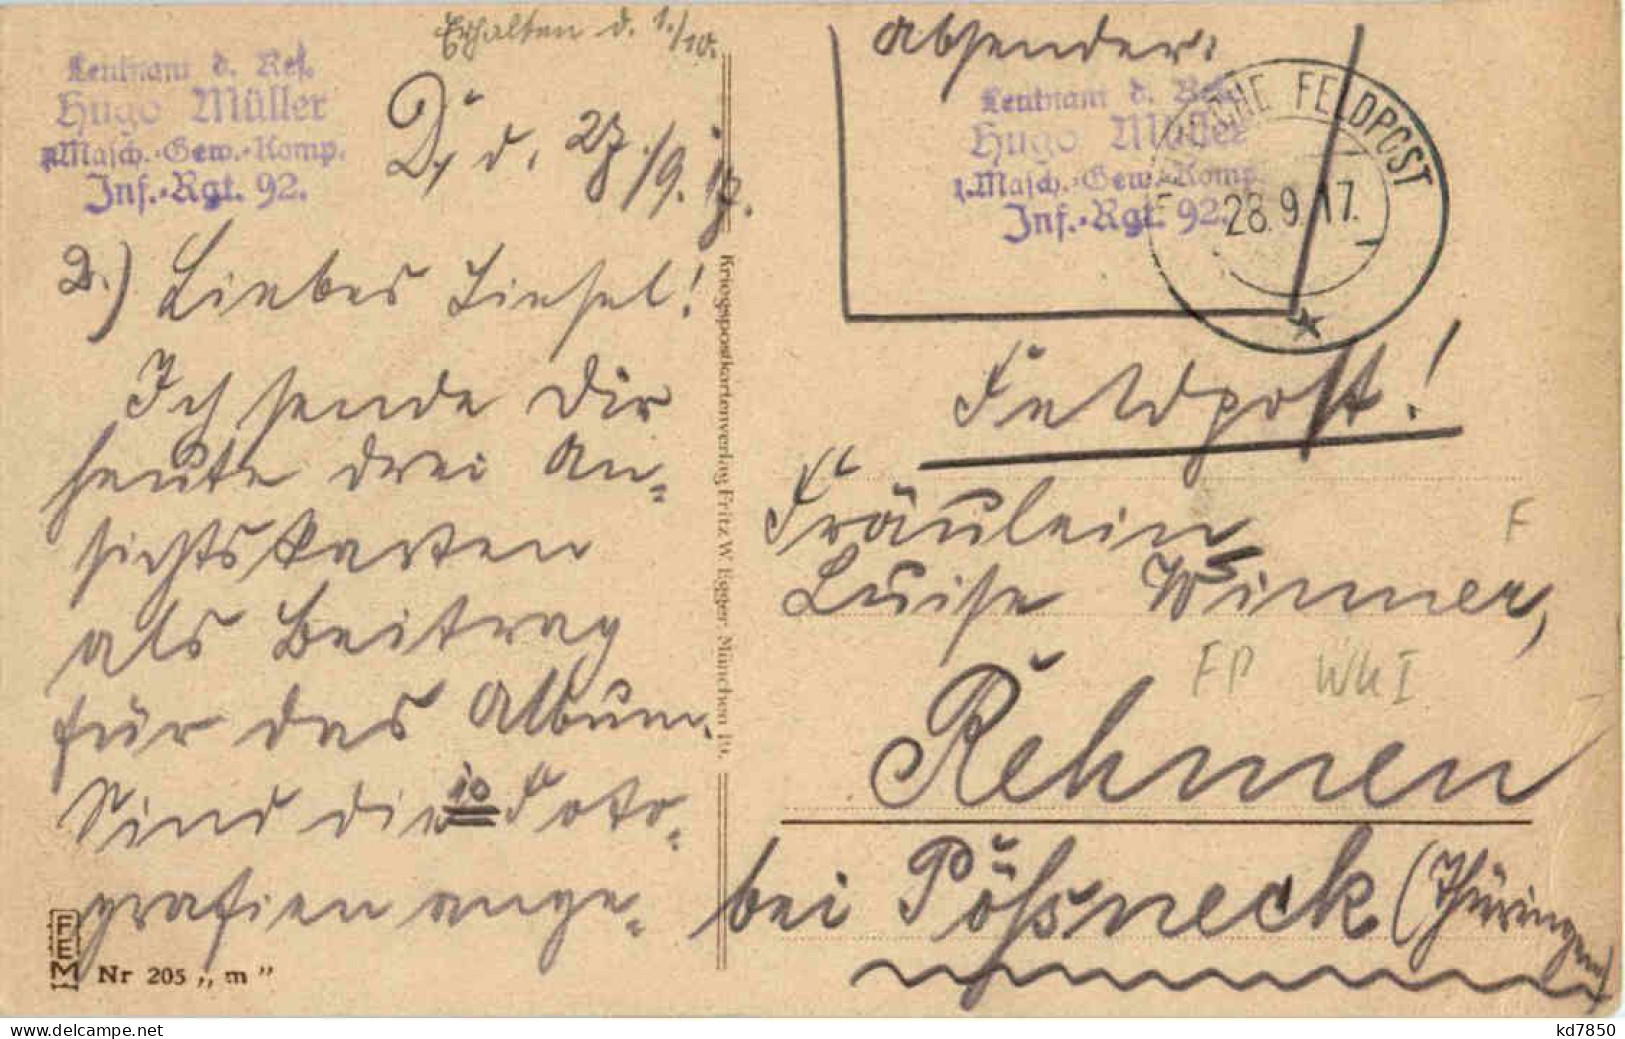 Erhalten d. 1./10.
Leutnant d. Res.
Hugo Müller
Masch.-Gew.-Komp.
Inf.-Rgt. 92.
D., d. 27./9. 17.
2.) Liebes Liesel!
Ich sende Dir
heute drei An-
sichtskarten
als Beitrag
für das Album.
Sind die 10 Foto-
grafien ange-
FEM
Nr 205 „m”
Kriegspostkartenverlag Fritz W. Egger München 19.
Absender:
Leutnant d. Res.
Hugo Müller
Masch.-Gew.-Komp.
Inf.-Rgt. 92.
DEUTSCHE FELDPOST
28.9.17.
Feldpost!
Fräulein
F
Luise Winner,
FP WKI
Rehmen
bei Pößneck (Thüringen)
kd7850